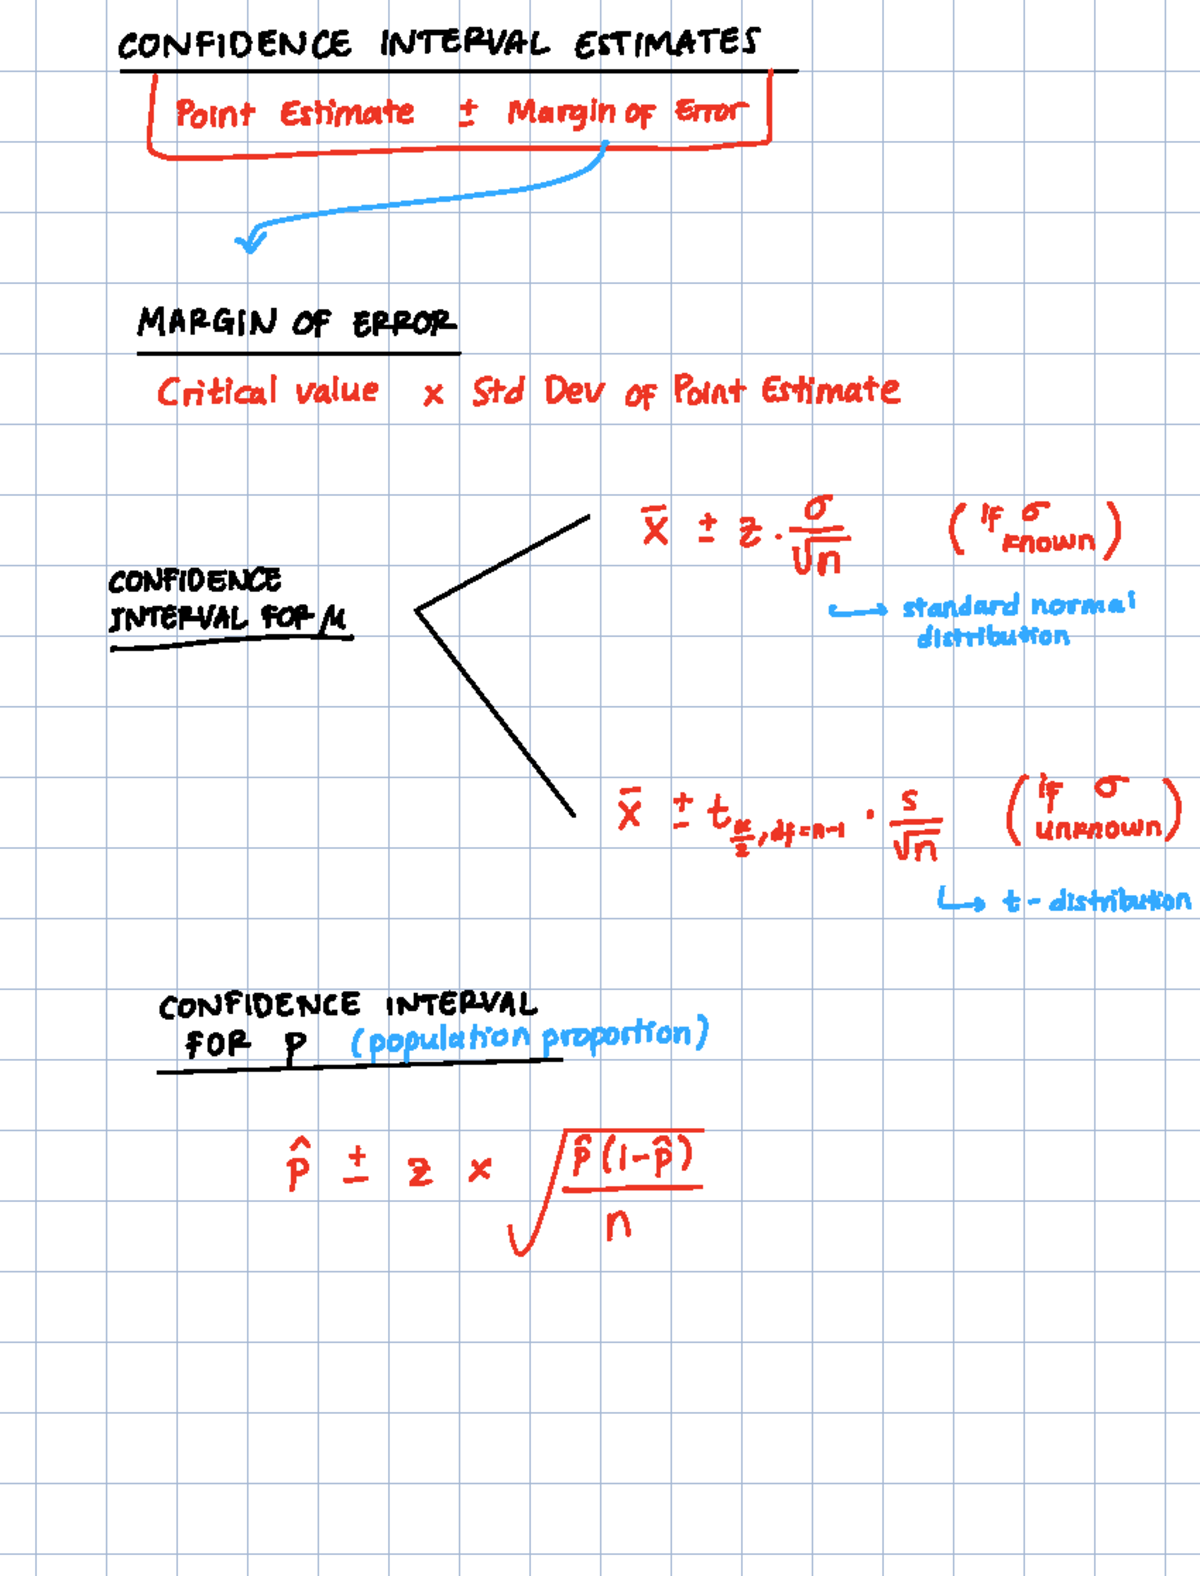 CONFIDENCE INTERVAL ESTIMATES
Point Estimate ± Margin of Error
MARGIN OF ERROR
Critical value x Std Dev of Point Estimate
CONFIDENCE
INTERVAL FOR μ
x̄ ± z · σ/√n (if σ known)
↳ standard normal
distribution
x̄ ± t α/2, df=n-1 · s/√n (if σ unknown)
↳ t-distribution
CONFIDENCE INTERVAL
FOR p (population proportion)
p̂ ± z x √(p̂(1-p̂)/n)